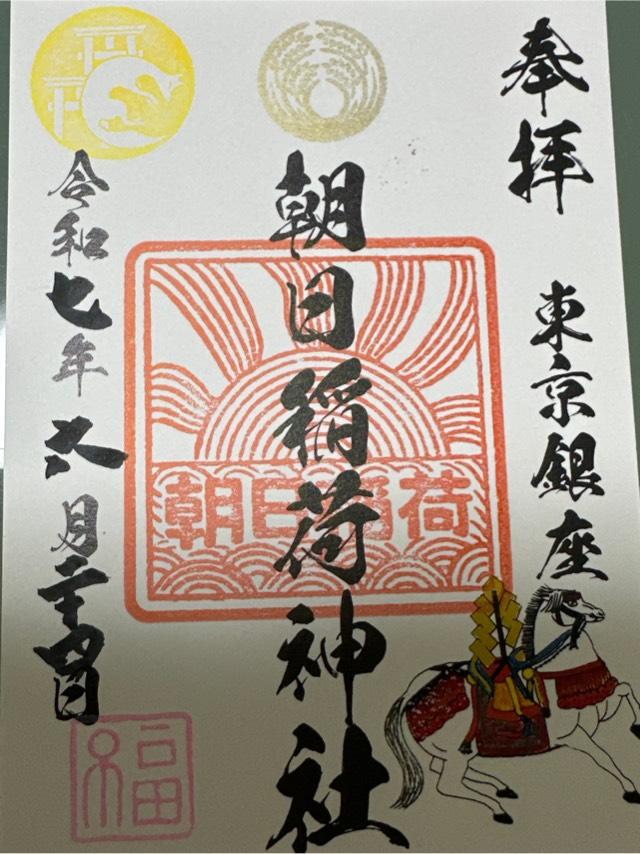 奉拝
東京銀座
朝日稲荷神社
朝日稲荷
令和七年六月二十四日
福